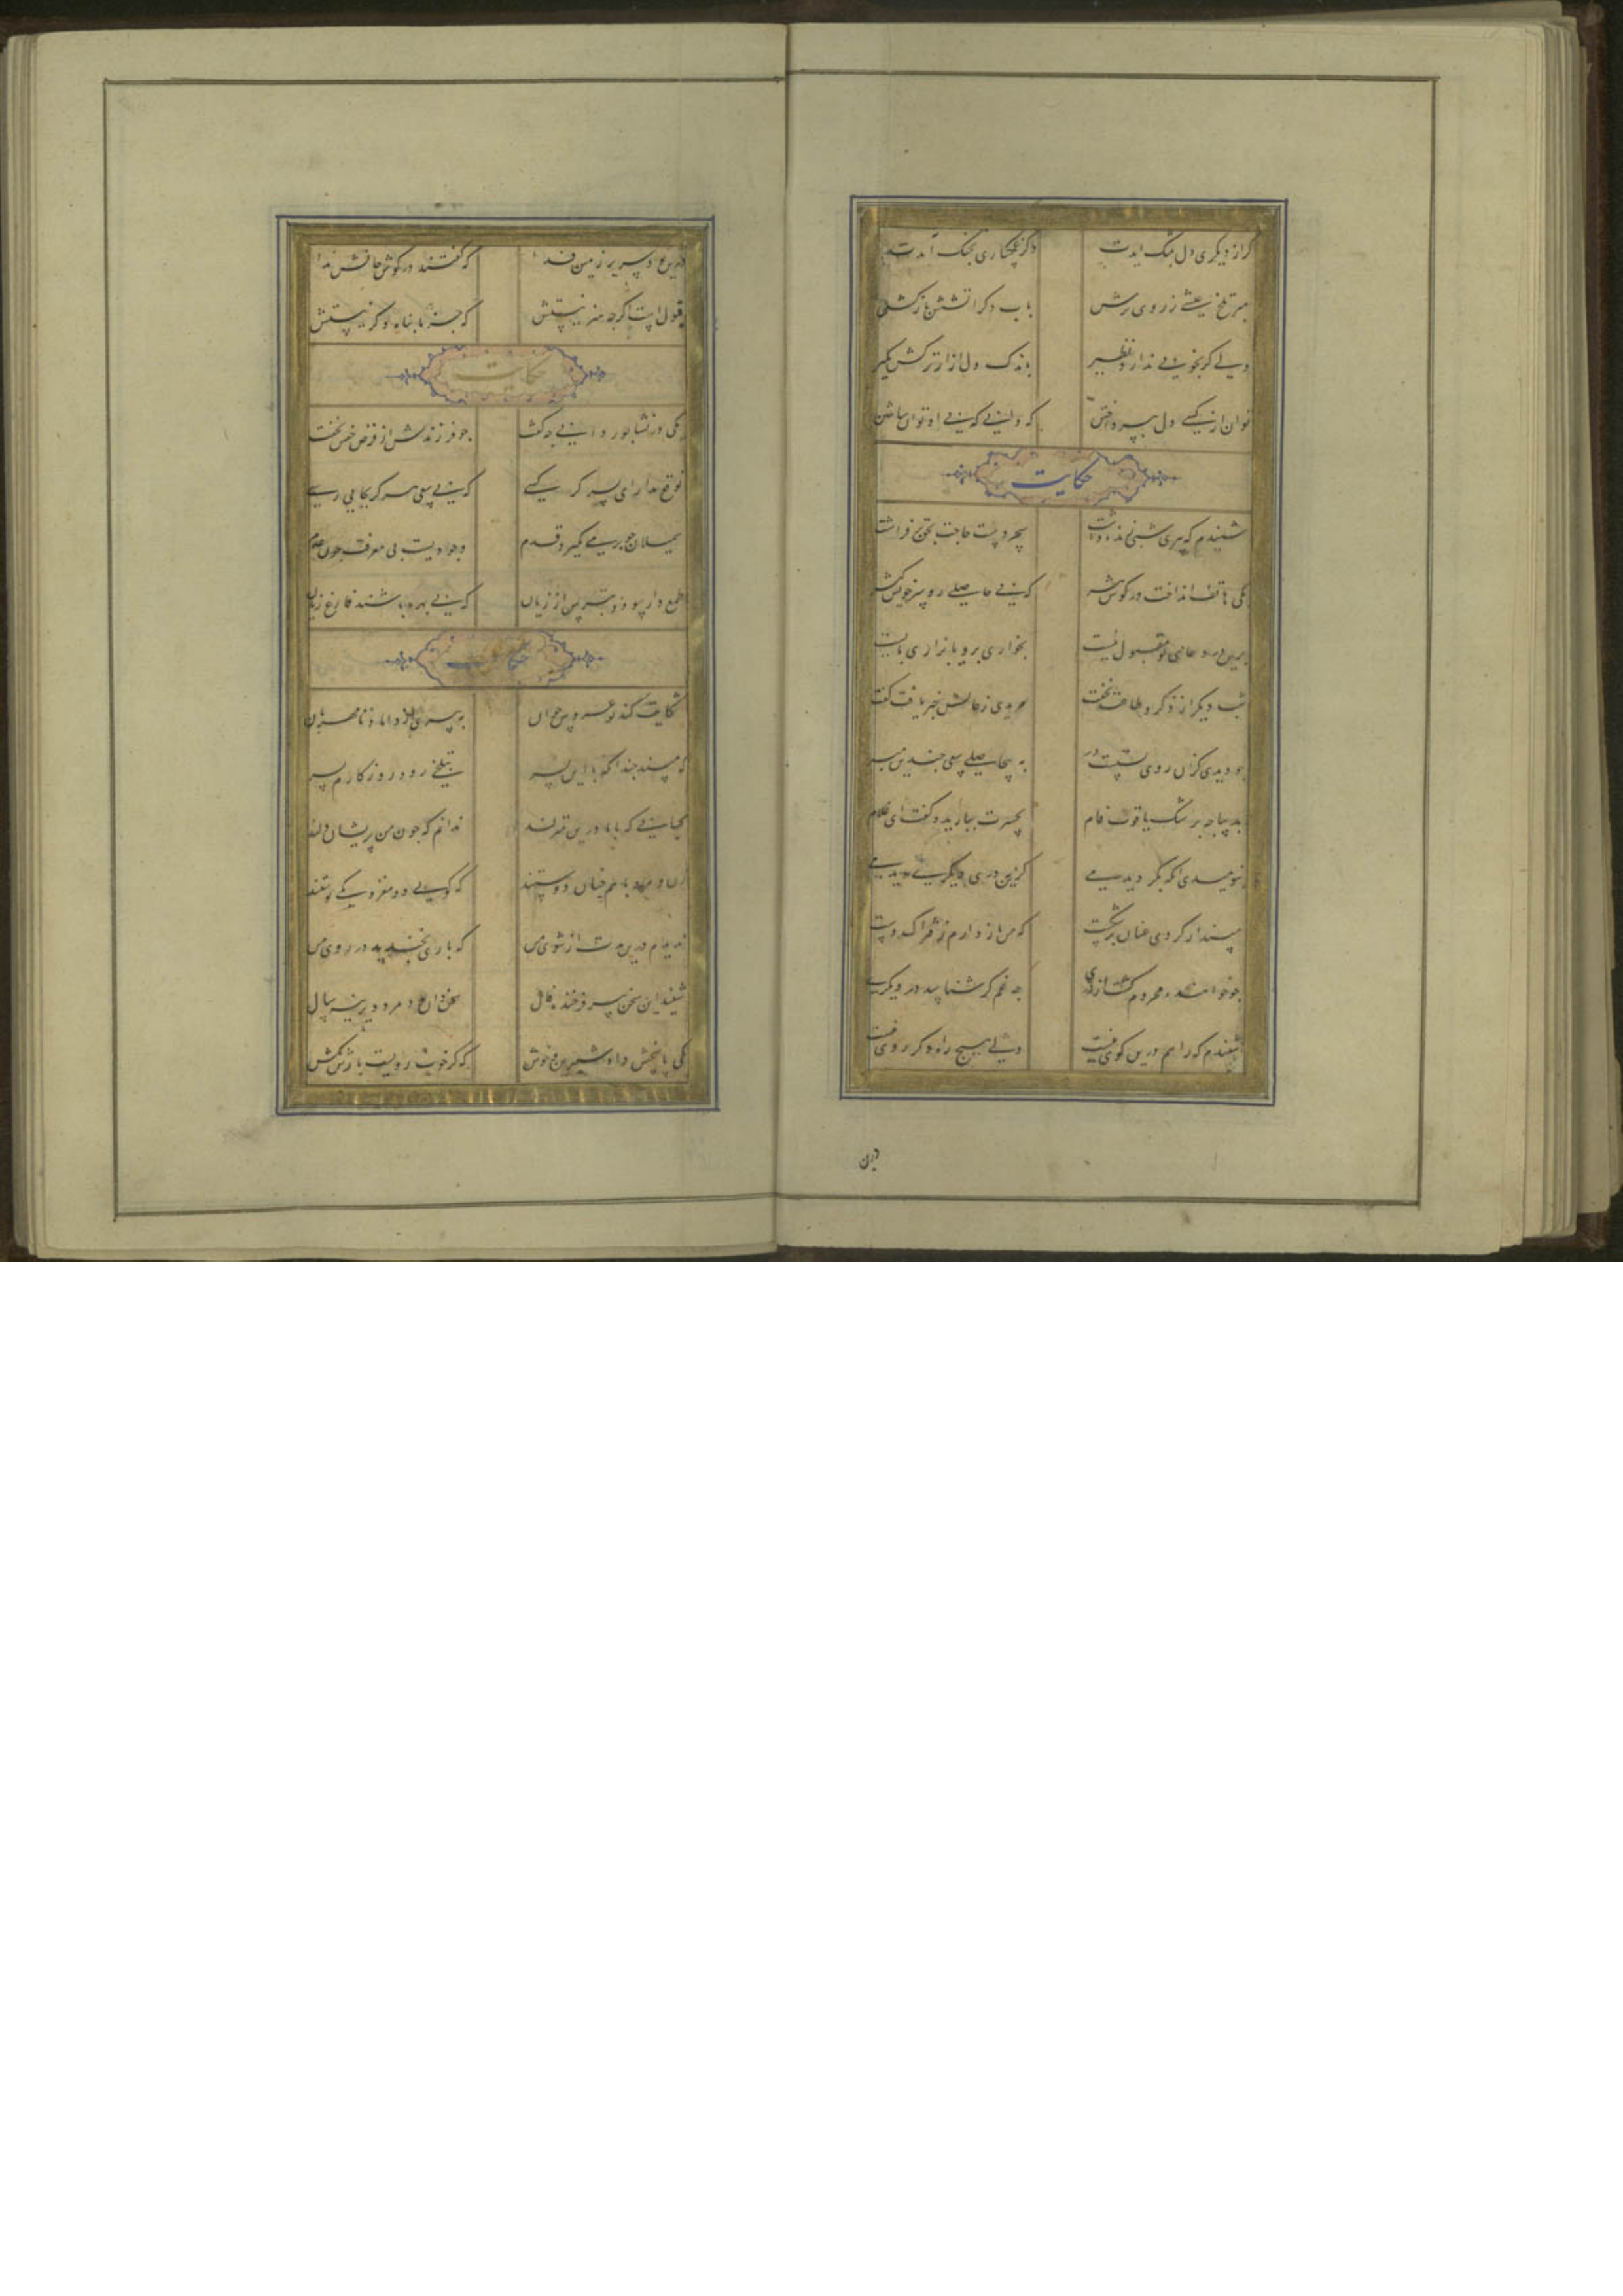 گر از دیگری دل بتنگ ایدت
دگر غمگساری بچنگ آمدت
مبر تلخ عیشی ز روی ترش
باب دگر اتشش بازکش
ولی گر بخوبی ندارد نظیر
باندک دل ازار ترکش مگیر
توان از کسی دل بپرداختن
که دانی که بی او توان ساختن
حکایت
شنیدم که پیری شبی زنده داشت
سحر دست حاجت بحق بر فراشت
یکی هاتف انداخت در کوش پیر
که بی حاصلی رو سر خویش گیر
برین در دعای تو مقبول نیست
بخواری برو یا بزاری بایست
شب دیگر از ذکر و طاعت نخفت
مریدی ز حالش خبر یافت گفت
چو دیدی کزان روی بستست در
به بیحاصلی سعی چندین مبر
بدیباجه بر اشک یاقوت فام
بحسرت ببارید و گفت ای غلام
بنومیدی انکه بگردیدمی
کزین در دری دیگری دیدمی
مپندار گر وی عنان برشکست
که من باز دارم ز فتراک دست
چو خواهنده محروم گشت از دری
چه غم گر شناسد در دیگری
شنیدم که راهم درین کوی نیست
ولی هیچ راه دگر روی نیست
درین
درین بود سر بر زمین فدا
که گفتند در کوش جانش ندا
قبول است اگرچه هنر نیستش
که جز ما پناه دگر نیستش
حکایت
یکی در نشابور دانی چه گفت
چو فرزندش از فرض خفتن بخفت
توقع مدار ای پسر گر کسی
که بی سعی هرگز بجایی رسی
سمیلان چو بر می نگیرد قدم
وجودیست بی معرفت چون عدم
طمع دار سود و بترس از زیان
که بی بهره باشند فارغ زیان
حکایت
شکایت کند نو عروس جوان
به پیری ز داماد نامهربان
که مپسند چندان که با این پسر
بتلخی رود روزگارم بسر
کسانی که با ما درین منزلند
ندانم که چون من پریشان دلند
زن و مرد با هم چنان دوستند
که گویی دو مغز و یکی پوستند
ندیدم درین مدت از شوی من
که باری بخندید در روی من
شنید این سخن پیر فرخنده فال
سخن دان بود مرد دیرینه سال
یکی پاسخش داد شیرین و خوش
که گر خوب رویست بارش بکش